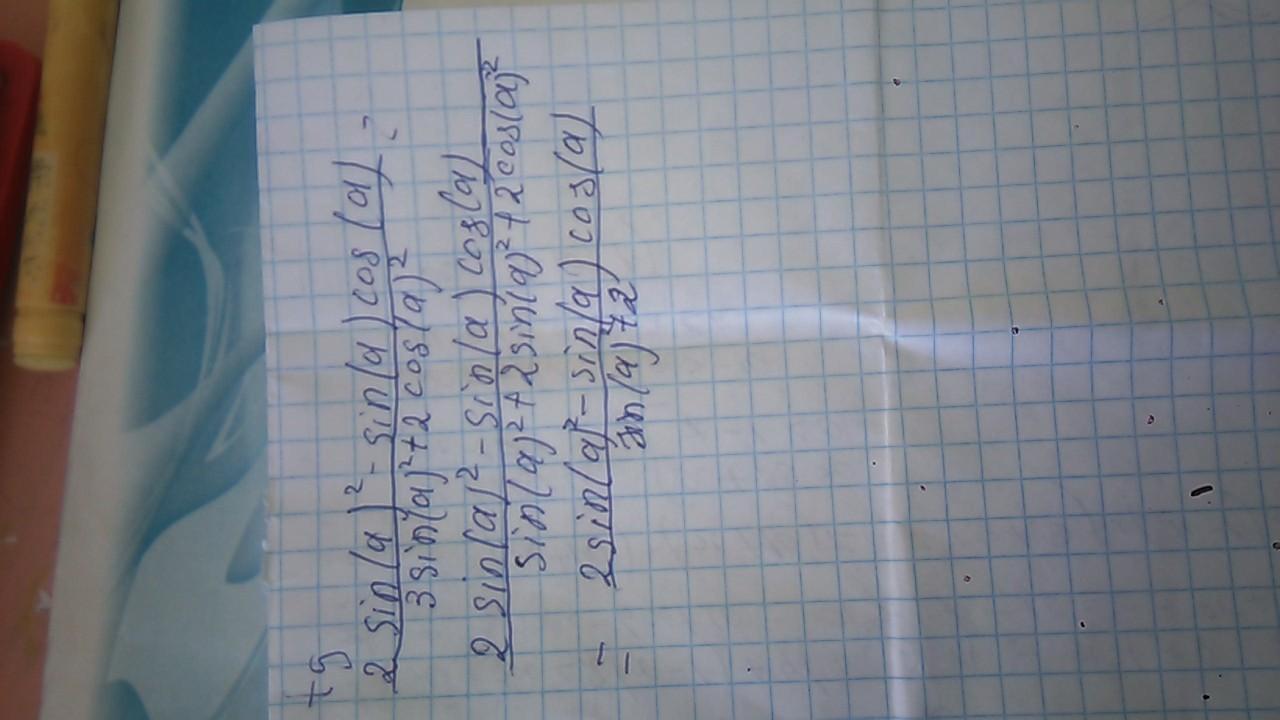 tg
2 sin(a)² - sin(a) cos(a) =
3 sin(a)² + 2 cos(a)²
2 sin(a)² - sin(a) cos(a)
sin(a)² + 2 sin(a)² + 2 cos(a)²
= 2 sin(a)² - sin(a) cos(a)
sin(a)² + 2